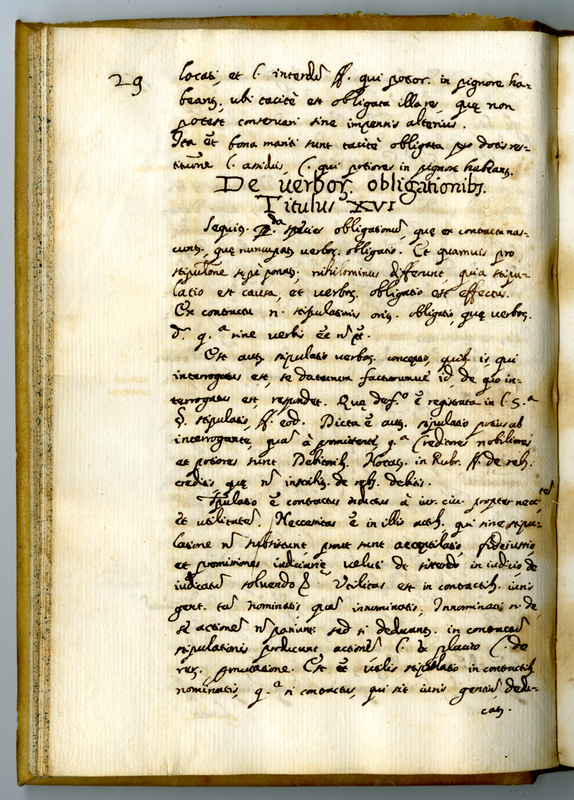 29
locati, et l. interdũ ff. qui potior. in pignore ha-
beant. ubi tacitè est obligata illa res, quę non
potest conservari sine impensis alterius.
Ita et̃ bona mariti sunt tacitè obligata pro dotis res-
titutione l. assiduis, C. qui potiores in pignore habeant.
De verbor. obligationib.
Titulus XVI
Sequit. 2.da species obligationum, quę ex contractu nas-
cunt. quę nuncupat. verbor. obligatio. Et quamvis pro
stipulatione sępè ponat. nihilominus differunt, quia stipu-
latio est causa, et verbor. obligatio est effectus.
Ex contractu n. stipulationis orit. obligatio, quę verbor.
d. q.a sine verbis
Est aut. stipulatio verbor. conceptio, quib. is, qui
interrogatus est, se daturum facturumve id, de quo in-
terrogatus est, respondet. Quę def.o ẽ registrata in l. 5.a
§. stipulatio, ff. eod. Dicta ẽ aut. stipulatio potius ab
interrogante, quã à promittente q.a Creditores nobiliores
et potiores sunt Debitorib. Notat. in Rubr. ff. de reb.
creditis que ñ inscribit. de reb. debitis.
Stipulatio ẽ contractus inductus à iur. civ. propter necc.tem
et utilitatem. Neccessitas ẽ in illis actib. qui sine stipu-
latione ñ subsistunt prout sunt acceptilatio, fideiussio,
et promissiones iudiciarię veluti de sistendo in iudicio, de
iudicatũ solvendo Utilitas est in contractib. iuris
gent. tam nominatis quam innominatis. Innominati n. de
se actionem ñ pariunt: sed si deducant. in contractum
stipulationis producunt actionem l. ex placito C. de
rer. permutatione. Est et̃ utilis stipulatio in contractib.
nominatis, q.a si contractus, qui sit iuris gentium dedu-
cat.